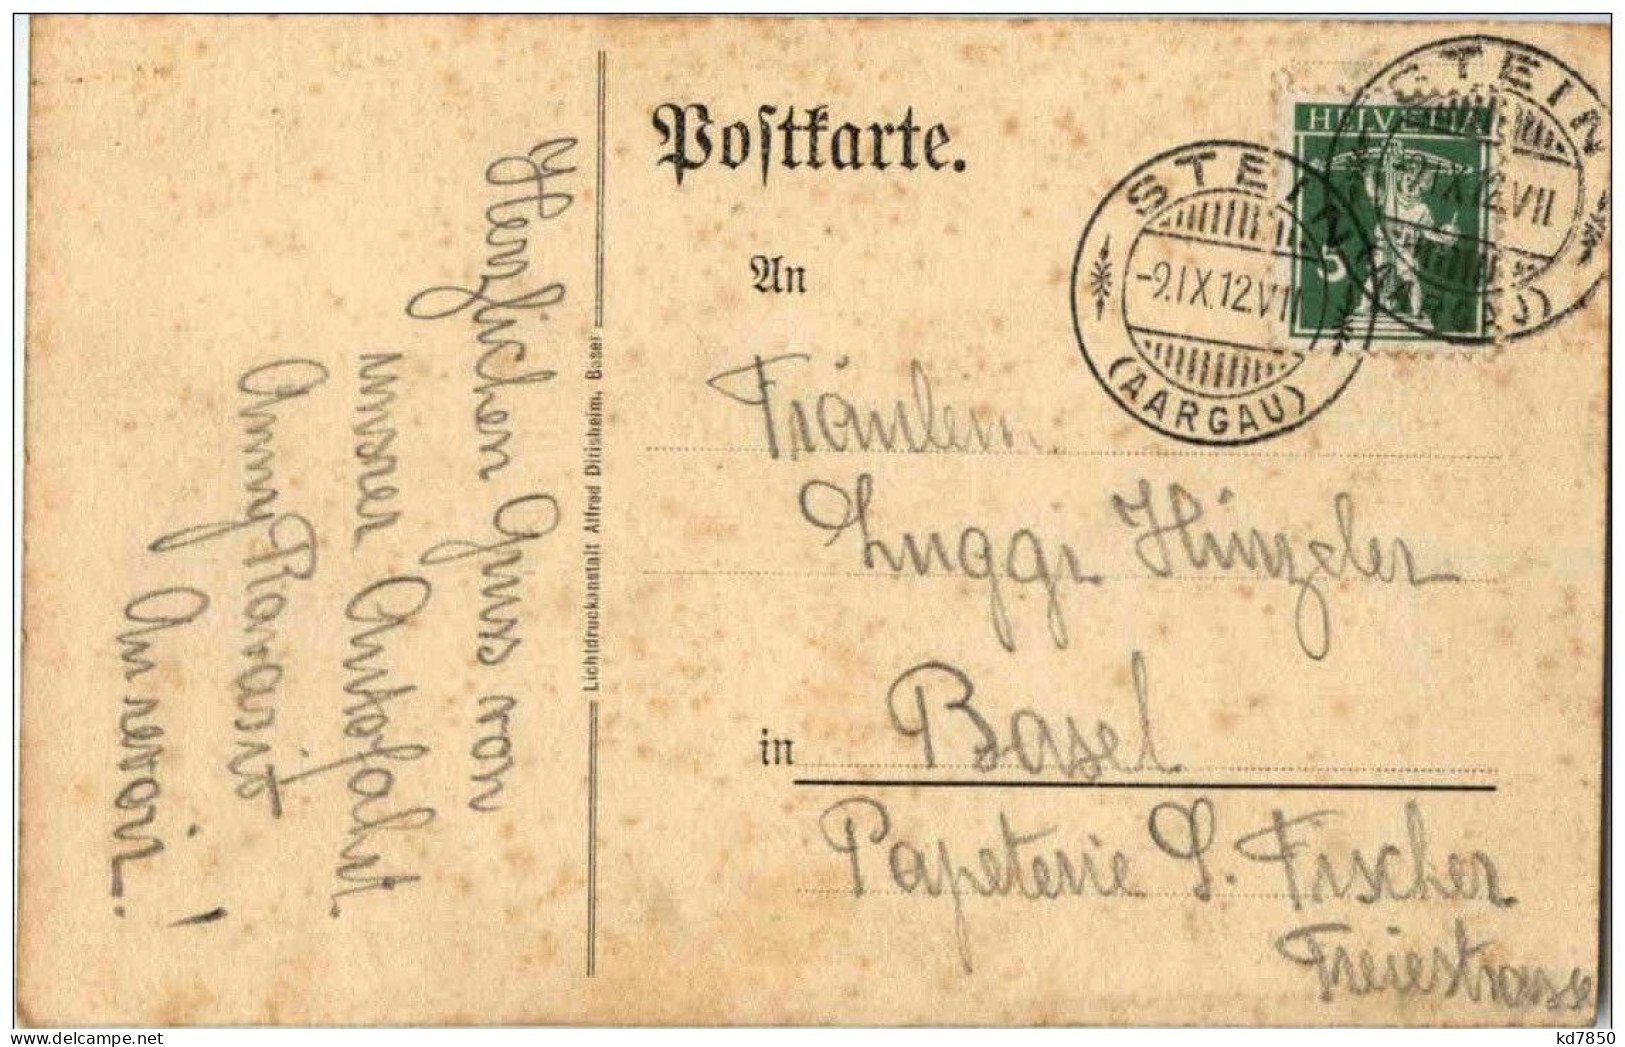 Postkarte.
HELVETIA
5
STEIN
-9.IX.12.VII
(AARGAU)
STEIN
-9.IX.12.VII
(AARGAU)
An
Fräulein
Luggi Hünzler
in Basel
Papeterie S. Fischer
Freiestrasse
Herzlichen Gruss von
unserer Autofahrt.
Anny
Lichtdruckanstalt Alfred Ditisheim, Basel
kd7850